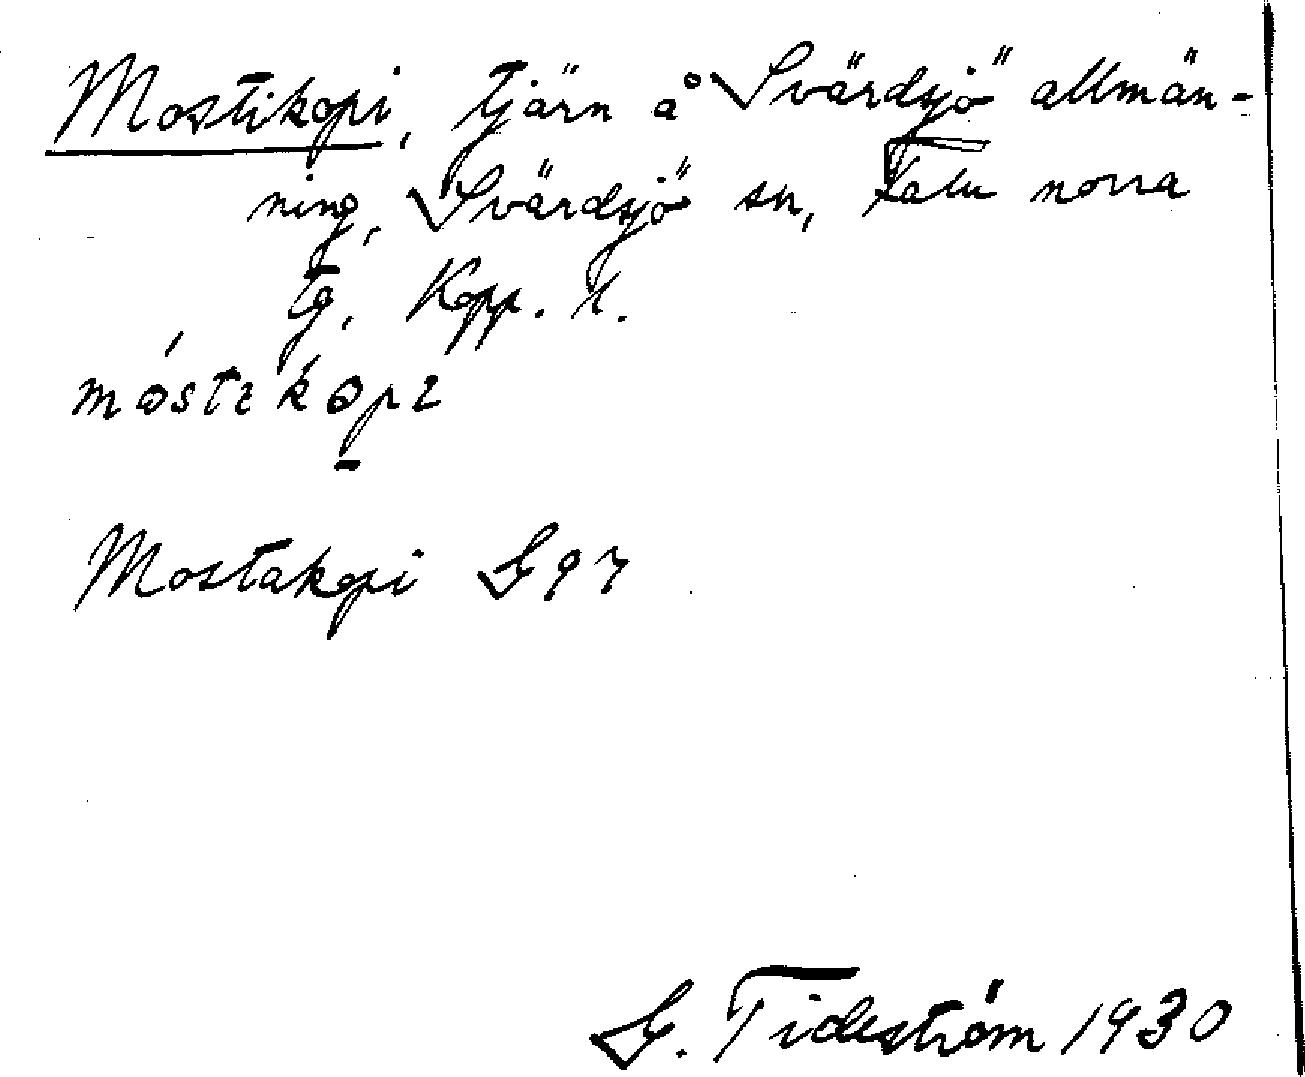 Mostikopi, tjärn å Svärdsjö allmän-
ning, Svärdsjö sn, Falu norra
tg, Kopp. l.
móstikopi
Mostakopi G 97
G. Tideström 1930